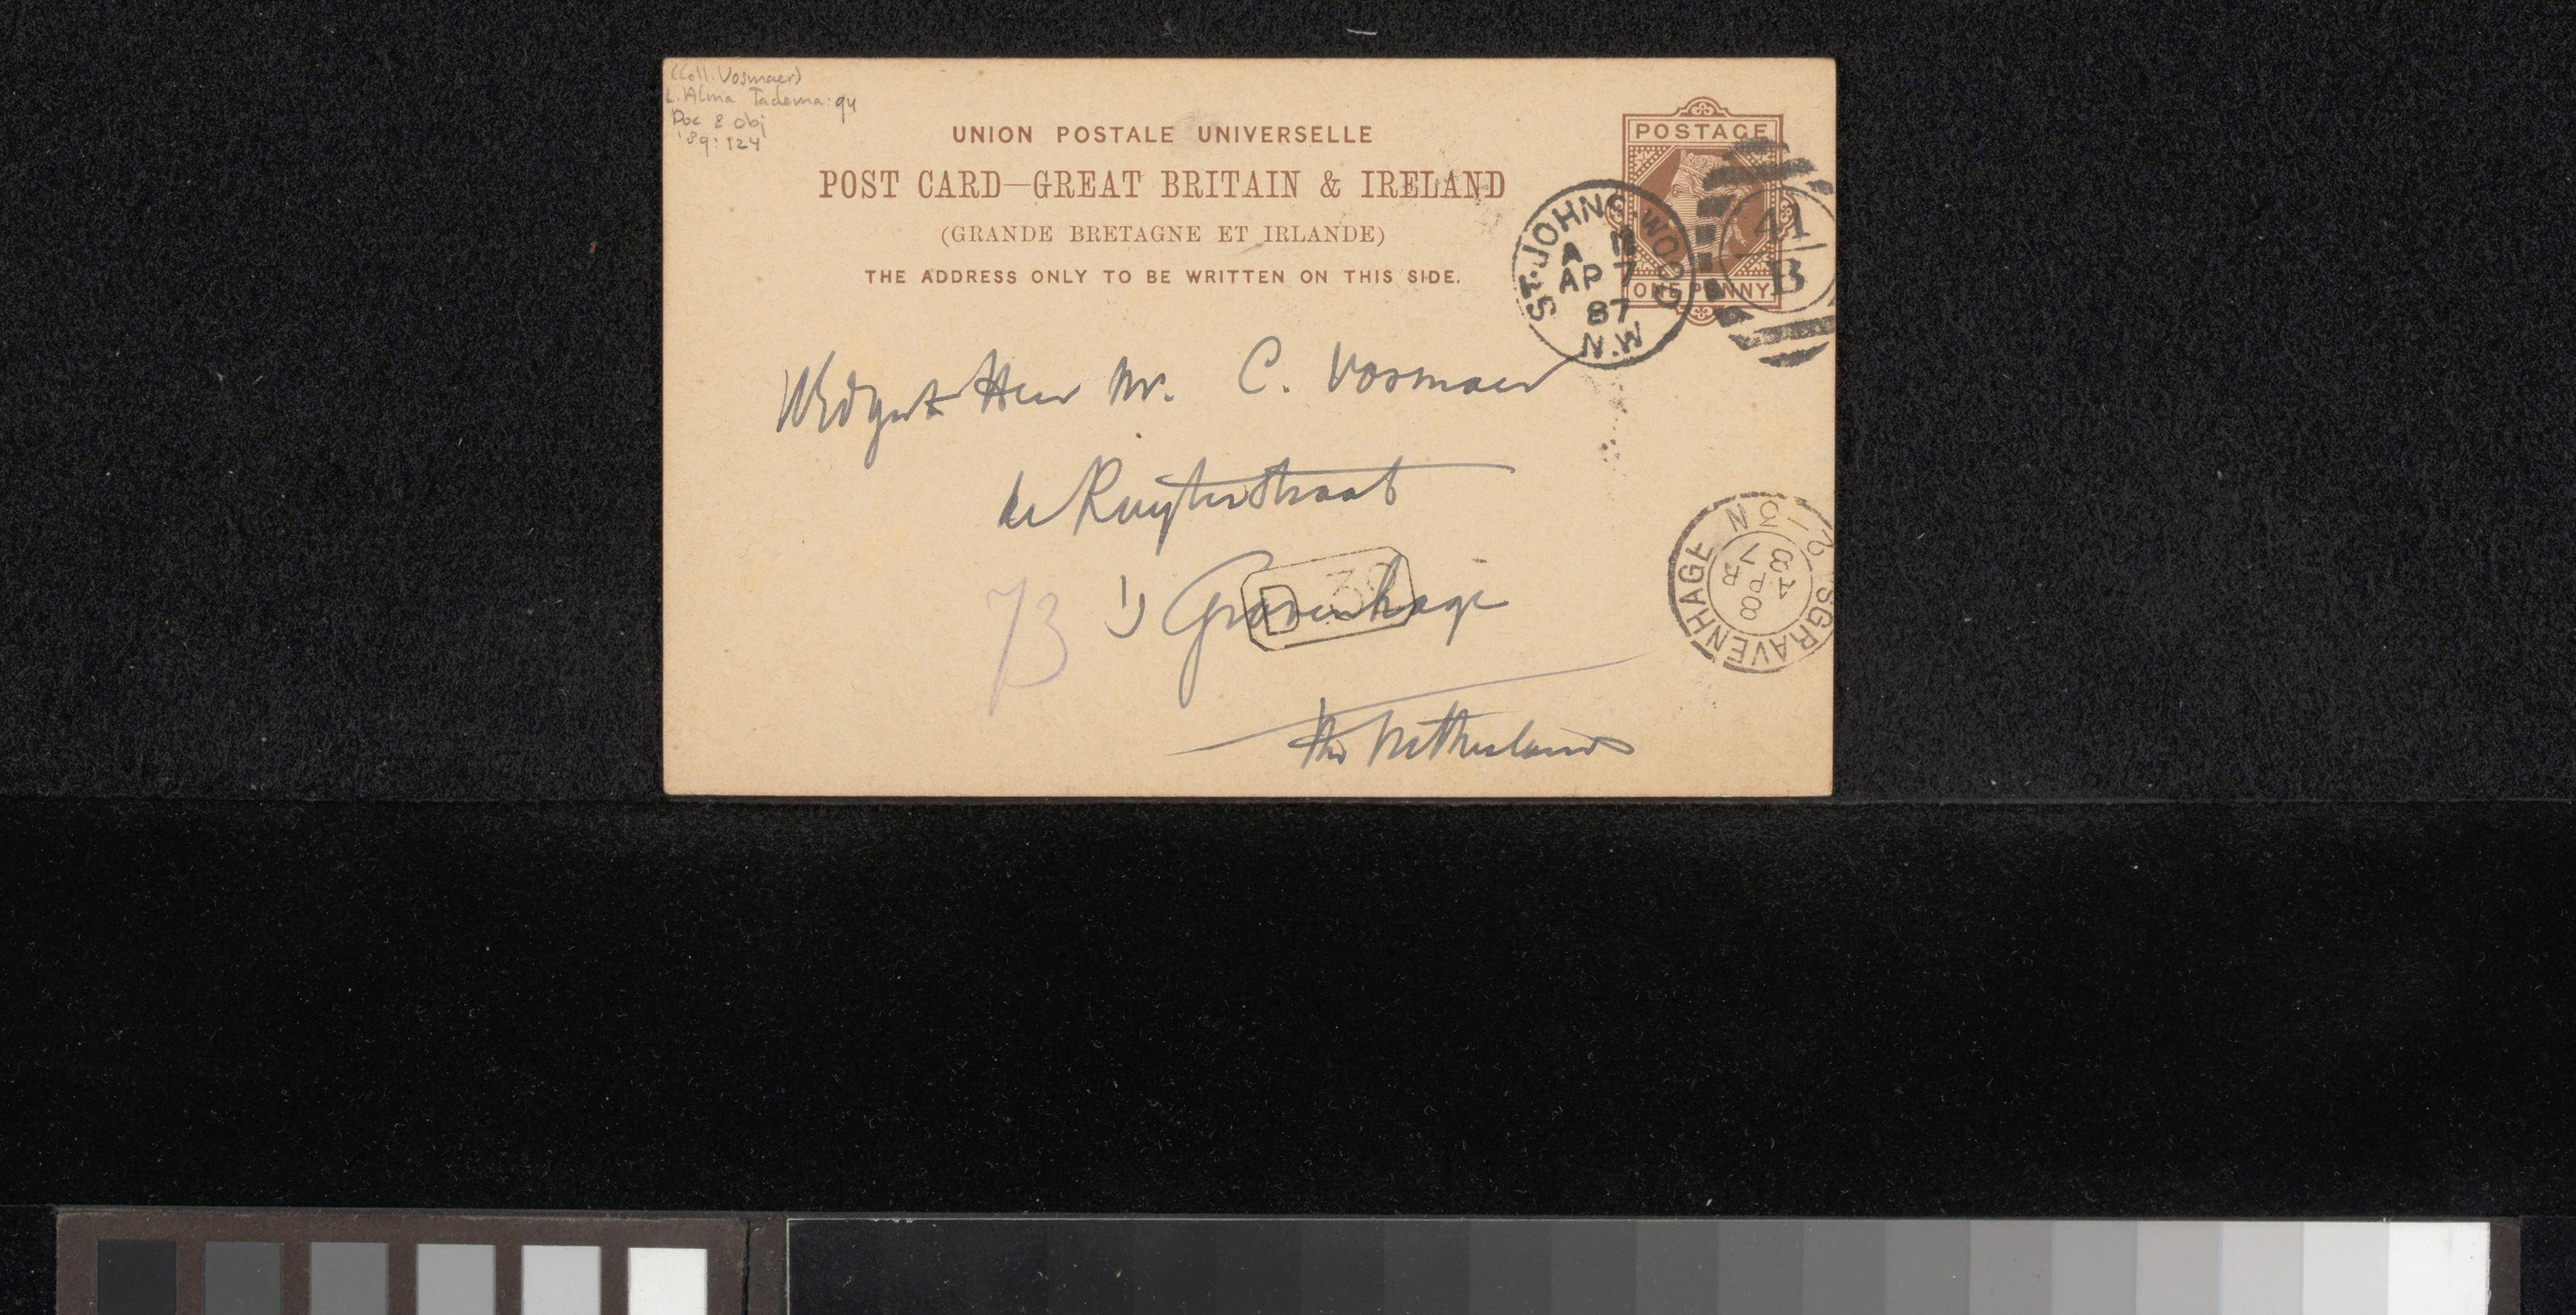 (Coll. Vosmaer)
L. Alma Tadema: 94
Doc & Obj
'89: 124
UNION POSTALE UNIVERSELLE
POST CARD—GREAT BRITAIN & IRELAND
(GRANDE BRETAGNE ET IRLANDE)
THE ADDRESS ONLY TO BE WRITTEN ON THIS SIDE.
POSTAGE
ONE PENNY
ST. JOHNS. WOOD
A 12
AP 7
87
N.W
41
B
WEdgest Heer Mr. C. Vosmaer
de Ruyterstraat
's Gravenhage
The Netherlands
73
D 39
SGRAVENHAGE
8 AP
87